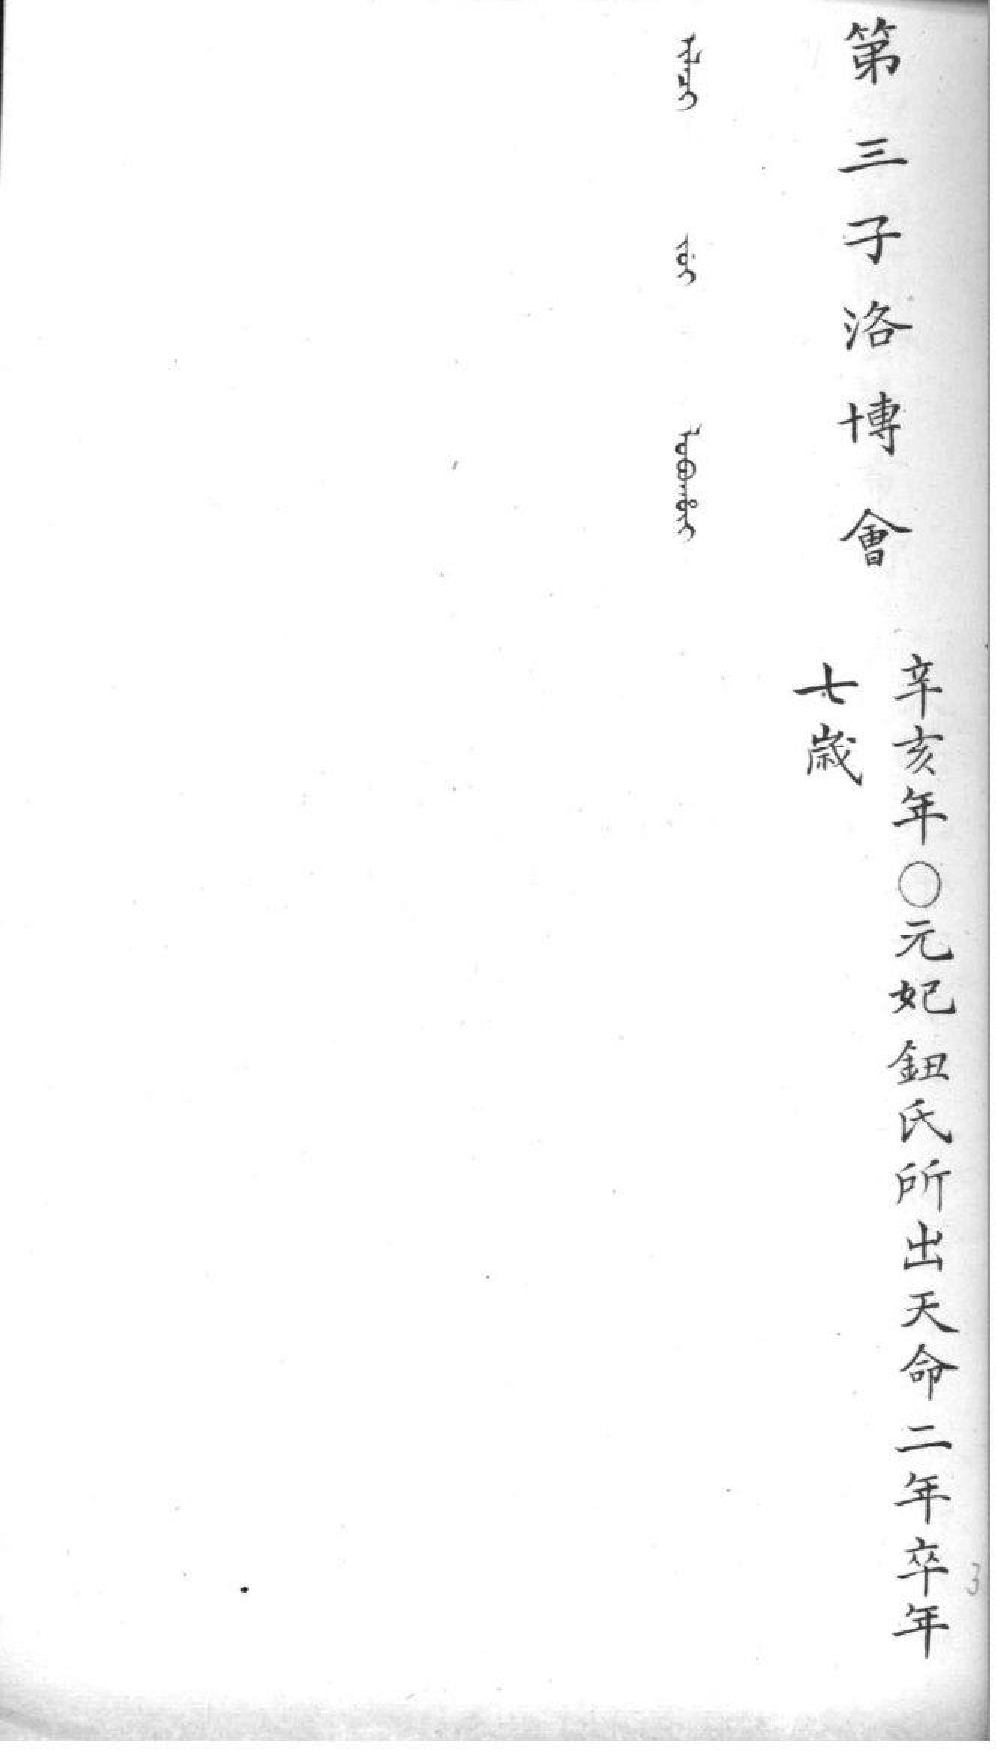 第三子洛博會
辛亥年〇元妃鈕氏所出天命二年卒年
七歲
ᡳᠯᠠᠴᡳ ᠵᡠᡳ
3